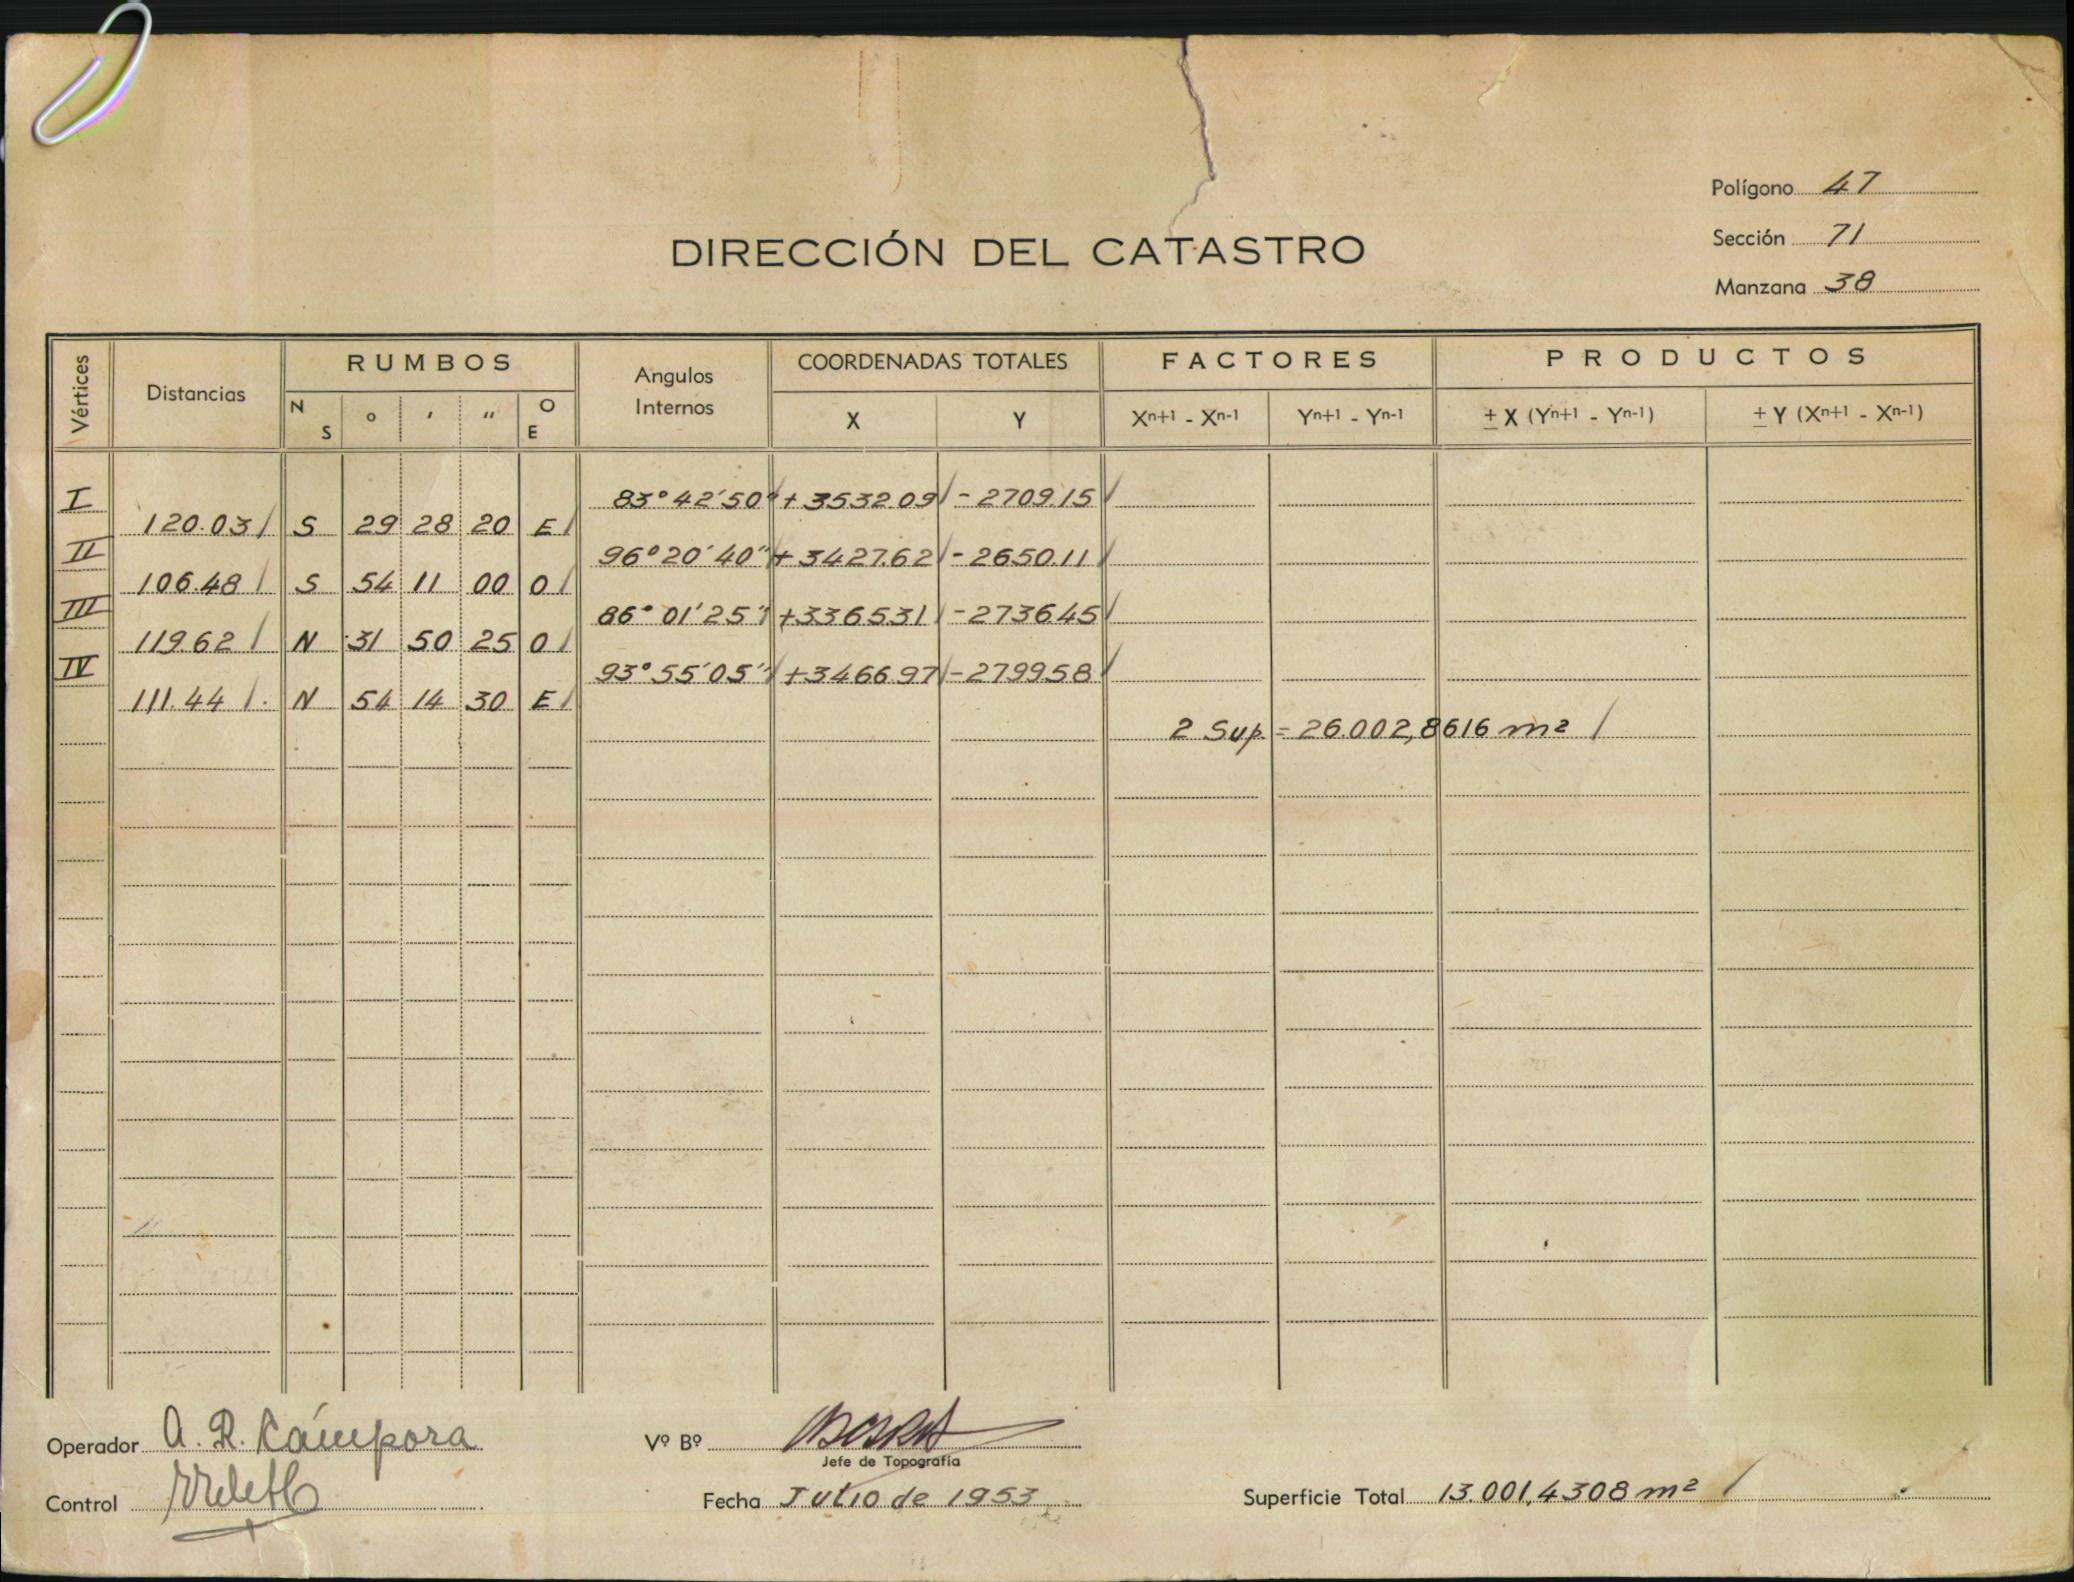 Polígono 47
DIRECCIÓN DEL CATASTRO
Sección 71
Manzana 38
Vértices Distancias RUMBOS Angulos Internos COORDENADAS TOTALES FACTORES PRODUCTOS
N S ° ' " O E X Y Xn+1 - Xn-1 Yn+1 - Yn-1 ± X (Yn+1 - Yn-1) ± Y (Xn+1 - Xn-1)
I 83° 42' 50" + 3532.09 - 2709.15
120.03 S 29 28 20 E
II 96° 20' 40" + 3427.62 - 2650.11
106.48 S 54 11 00 O
III 86° 01' 25" + 3365.31 - 2736.45
119.62 N 31 50 25 O
IV 93° 55' 05" + 3466.97 - 2799.58
111.44 N 54 14 30 E
2 Sup. = 26.002,8616 m²
Operador A. R. Cámpora Vº Bº
Jefe de Topografía
Control Fecha Julio de 1953 Superficie Total 13.001,4308 m²